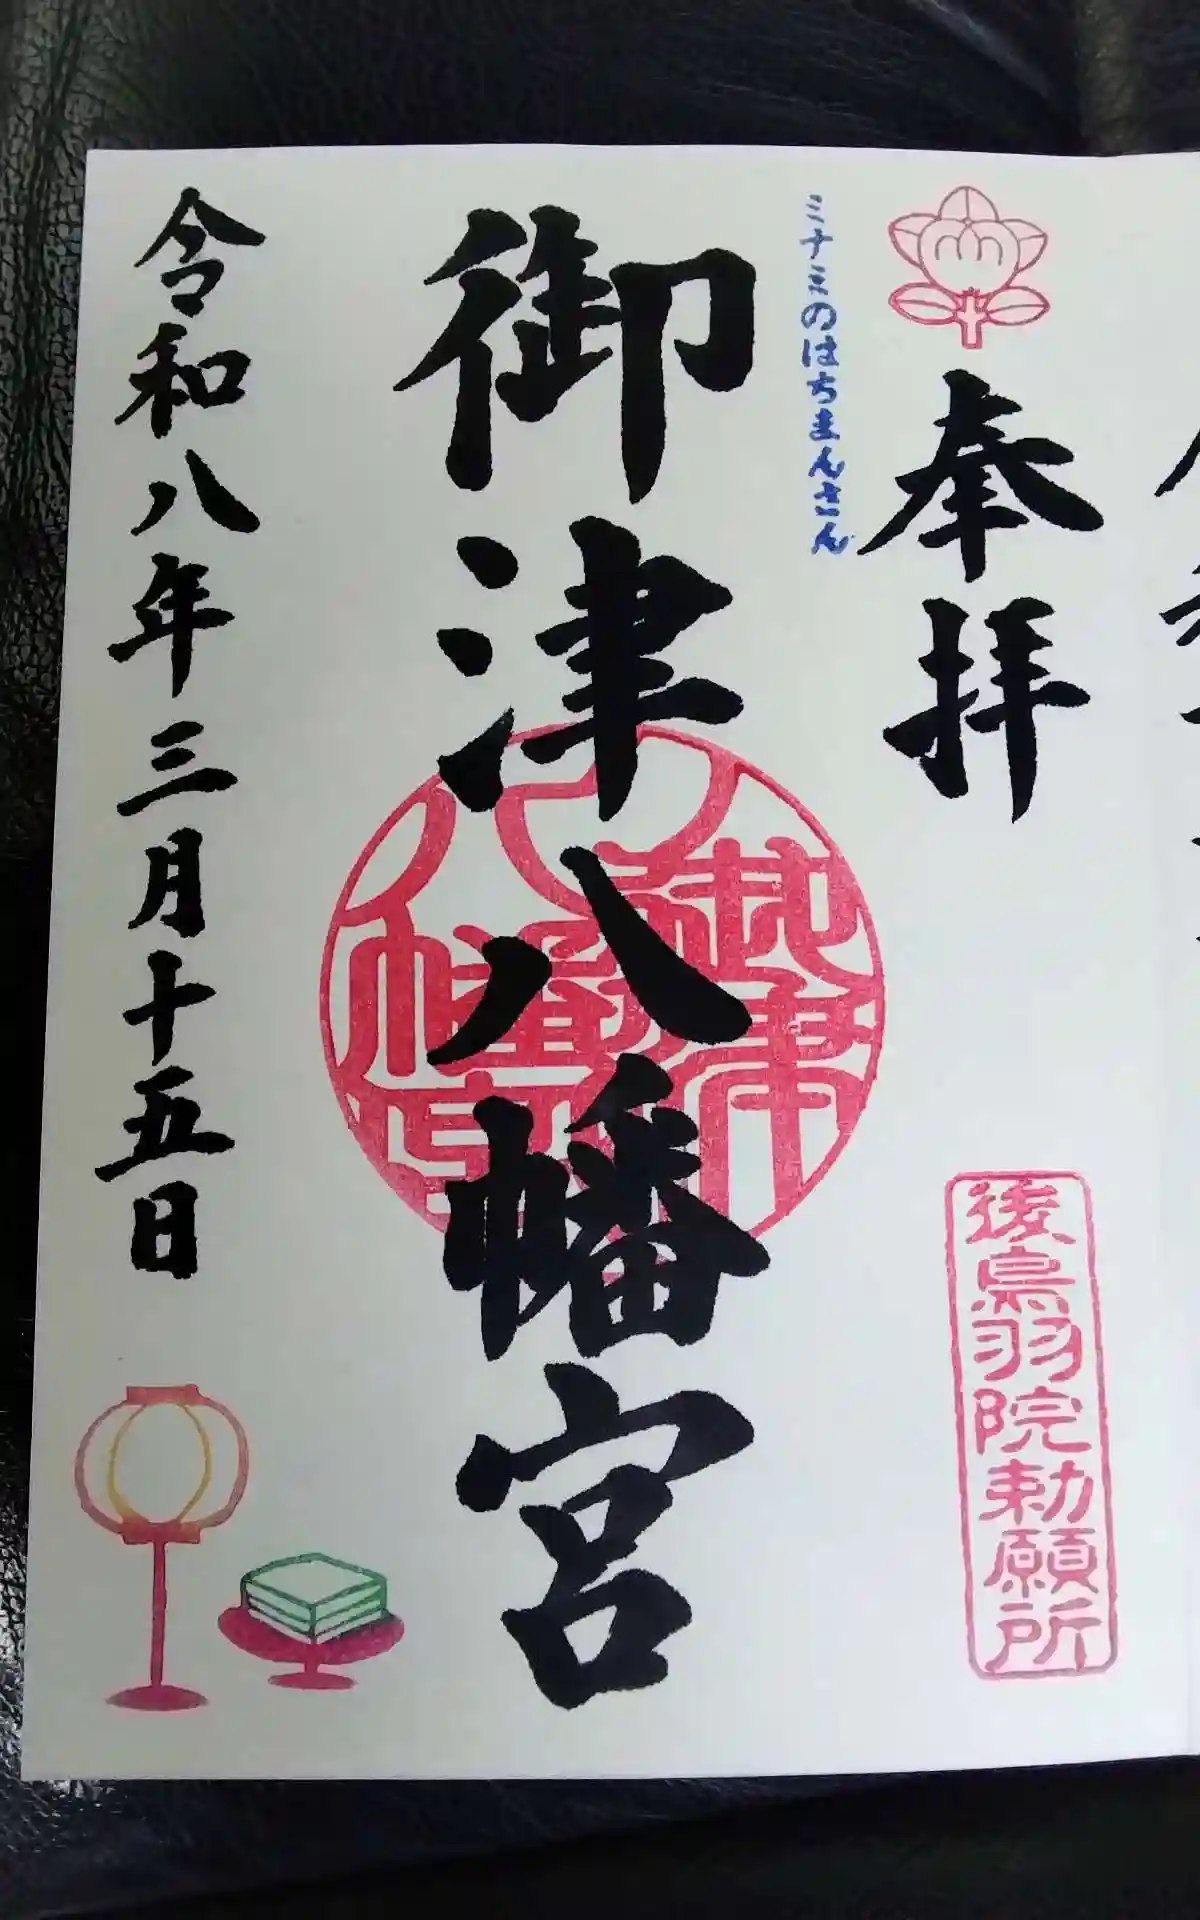 奉拝
後鳥羽院勅願所
ミナミのはちまんさん
御津八幡宮
御津
八幡宮
令和八年三月十五日